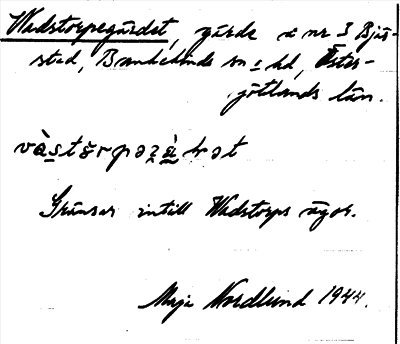 Wadstorpegärdet, gärde å nr 3 Bjär-
stad, Bankekinds sn o hd, Öster-
götlands län.
Gränsar intill Wadstorps ägor.
Maja Nordlund 1944.